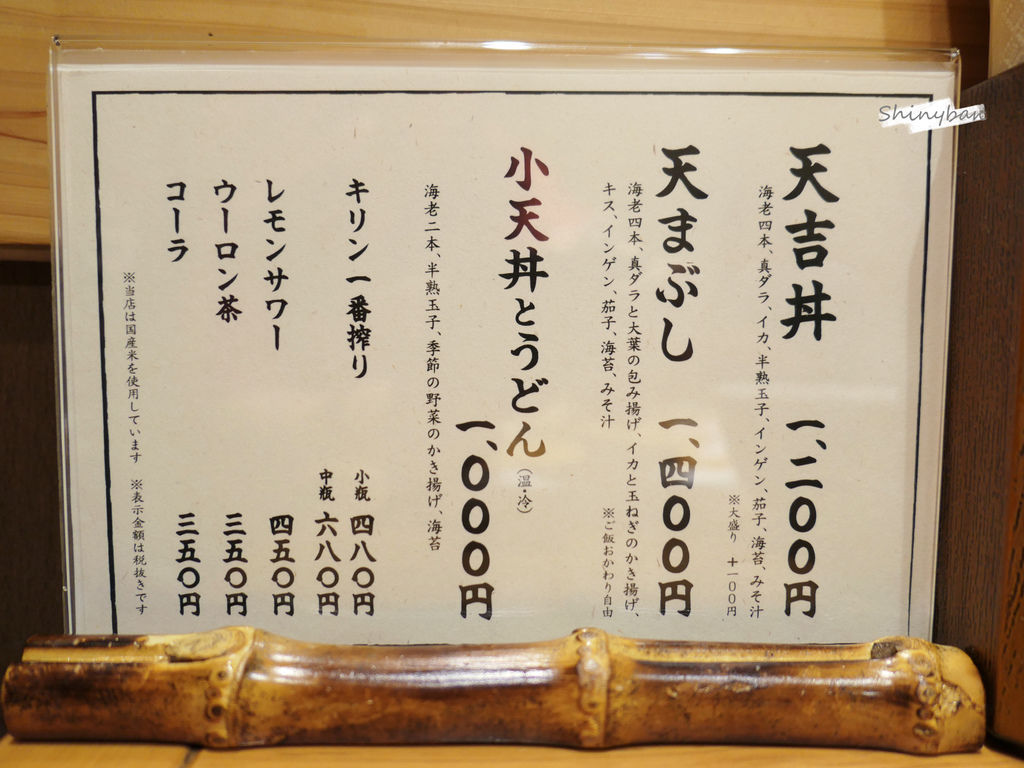 天吉丼 一、二〇〇円
海老四本、真ダラ、イカ、半熟玉子、インゲン、茄子、海苔、みそ汁
※大盛り 十一〇〇円
天まぶし 一、四〇〇円
海老四本、真ダラと大葉の包み揚げ、イカと玉ねぎのかき揚げ、
キス、インゲン、茄子、海苔、みそ汁
※ご飯おかわり自由
小天丼とうどん(温・冷)
一、〇〇〇円
海老二本、半熟玉子、季節の野菜のかき揚げ、海苔
キリン一番搾り 小瓶 四八〇円
中瓶 六八〇円
レモンサワー 四五〇円
ウーロン茶 三五〇円
コーラ 三五〇円
※当店は国産米を使用しています ※表示金額は税抜きです
Shinyban